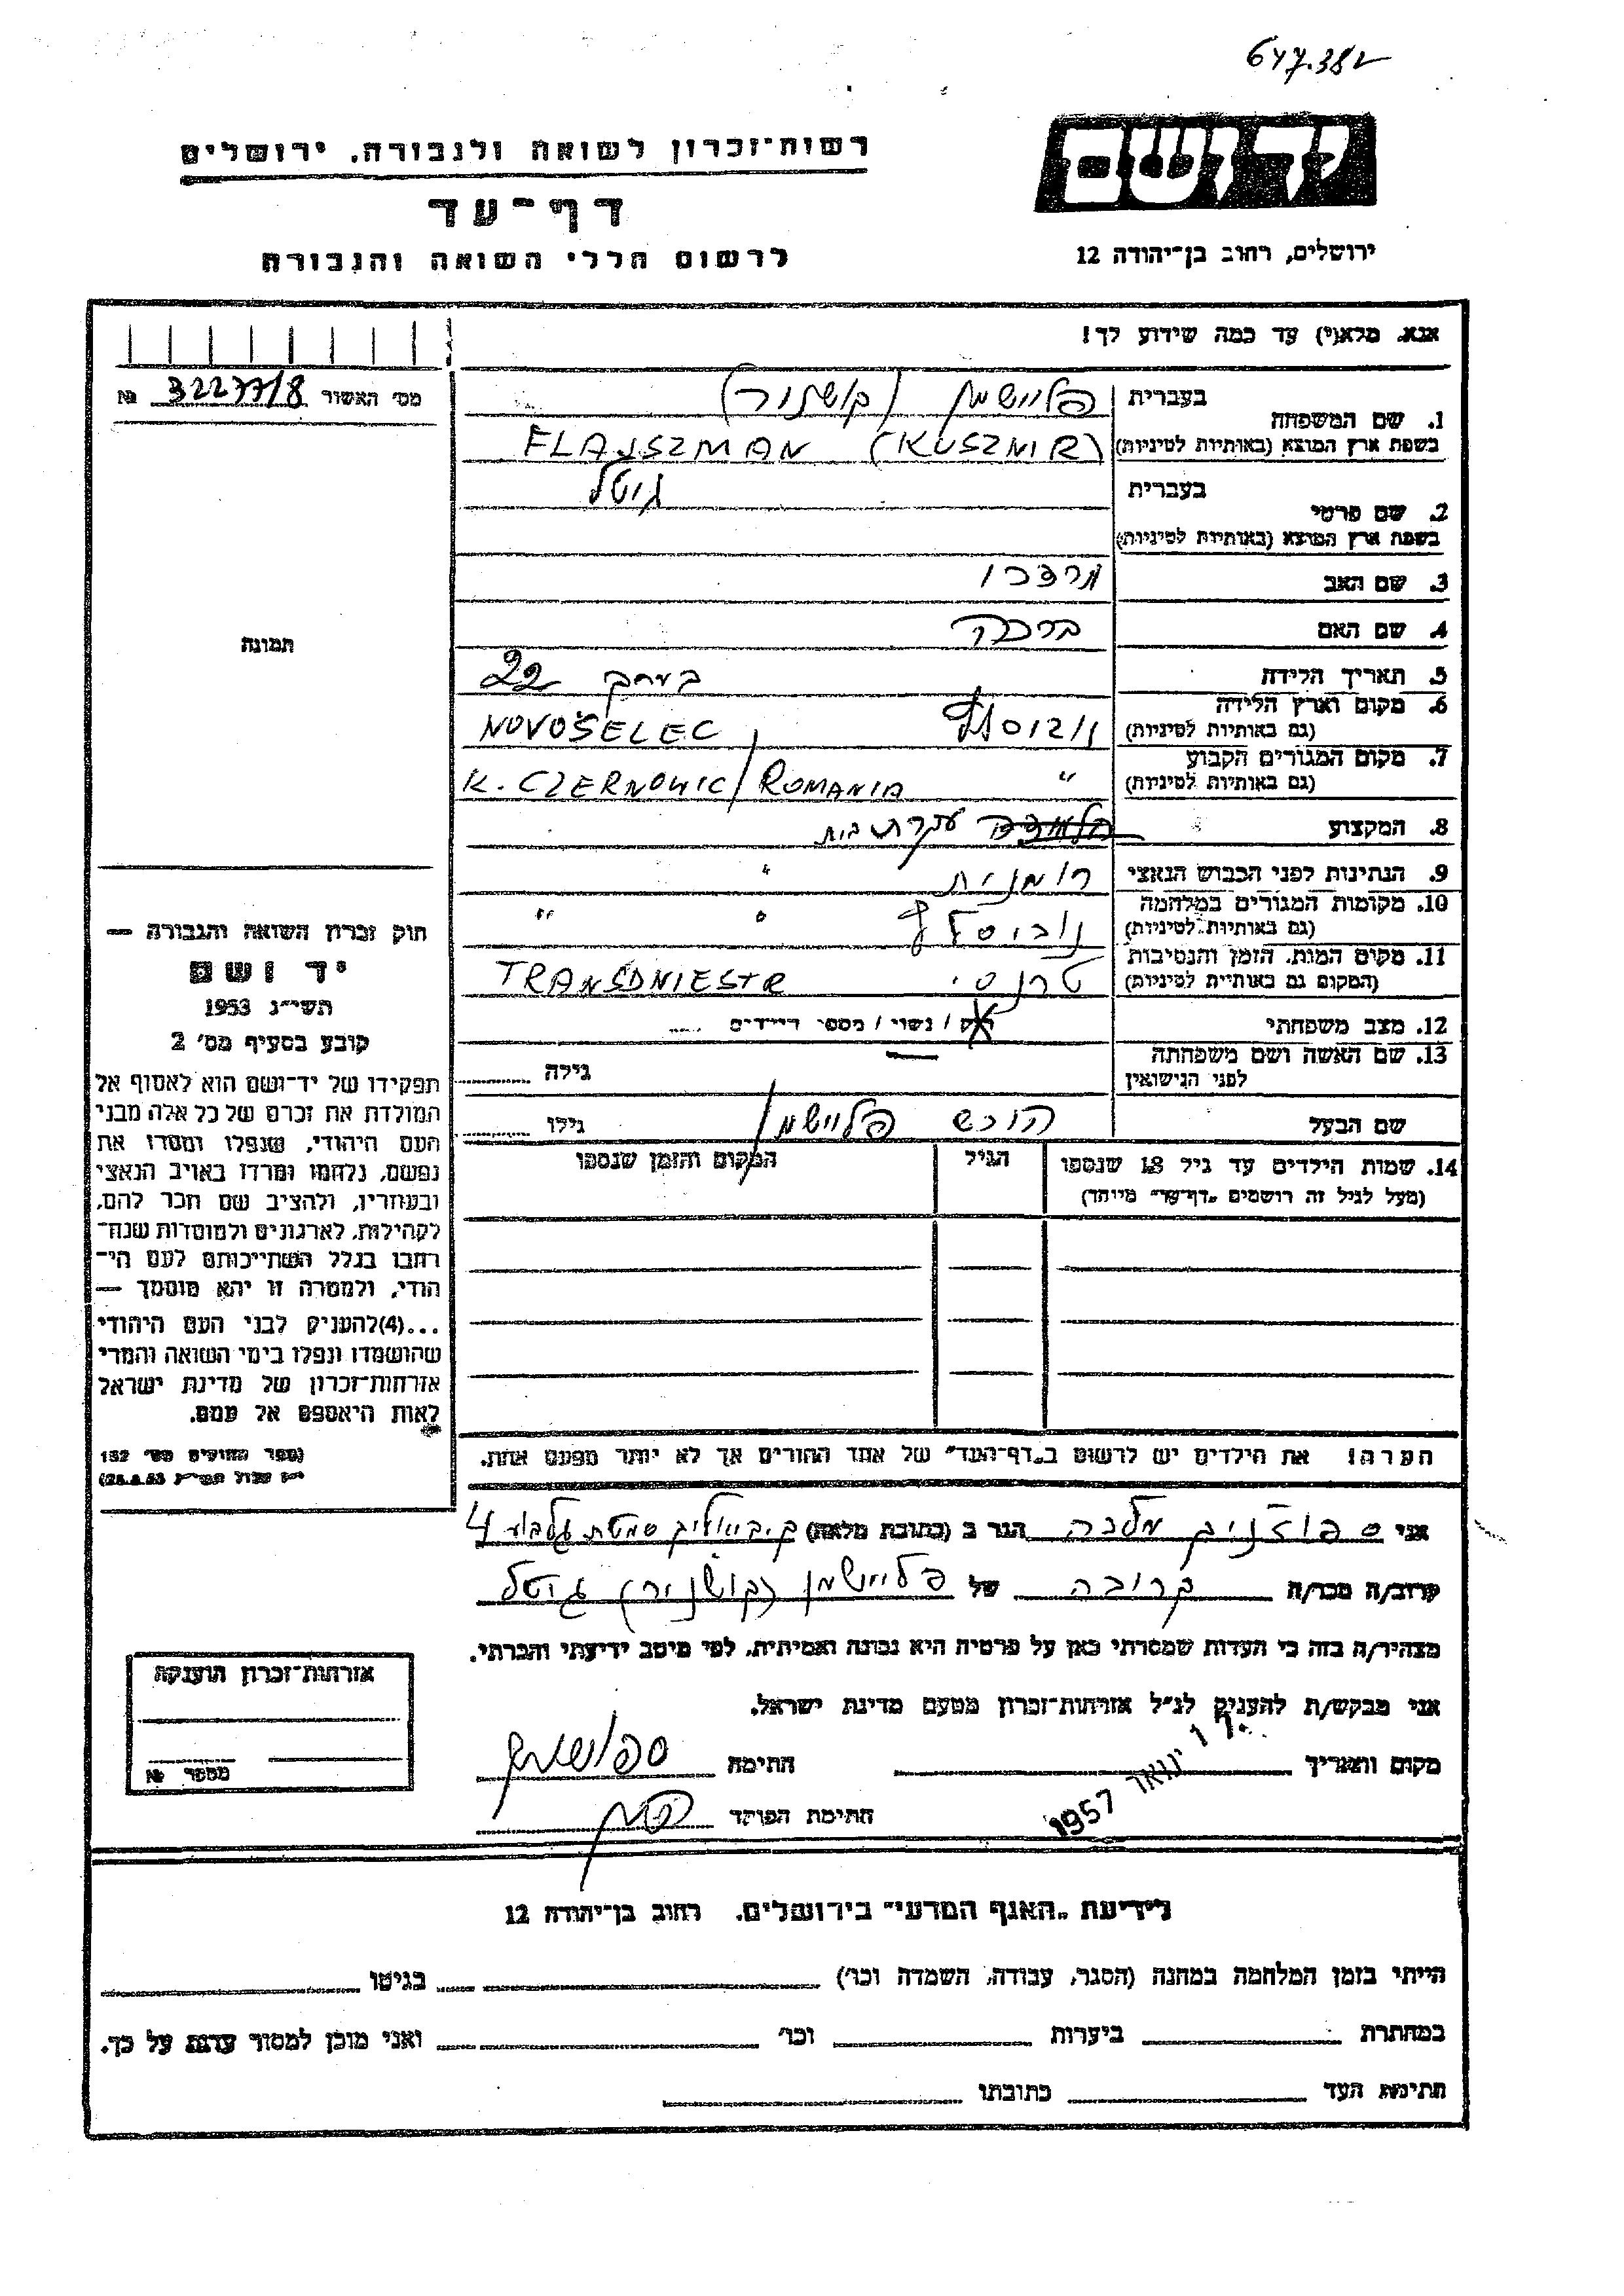 647.382
רשות־זכרון לשואה ולגבורה. ירושלים
יד ושם
דף־עד
ירושלים, רחוב בן־יהודה 12
לרשום חללי השואה והגבורה
אנא, מלא(י) עד כמה שידוע לך!
מס׳ האשור № 32277/8
1. שם המשפחה
בעברית פליישמן (קושניר)
בשפת ארץ המוצא (באותיות לטיניות) FLAJSZMAN (KUSZNIR)
2. שם פרטי
בעברית גיטל
בשפת ארץ המוצא (באותיות לטיניות)
3. שם האב מרדכי
4. שם האם ברכה
5. תאריך הלידה 22
6. מקום וארץ הלידה
(גם באותיות לטיניות) NOVOŠELEC
7. מקום המגורים הקבוע
(גם באותיות לטיניות) " K. CZERNOWIC / ROMANIA
8. המקצוע עקרת בית
9. הנתינות לפני הכבוש הנאצי רומנית "
10. מקומות המגורים במלחמה
(גם באותיות לטיניות) " "
11. מקום המות, הזמן והנסיבות
(המקום גם באותיות לטיניות) טרנס׳ TRANSDNIESTR
12. מצב משפחתי רוק / נשוי / מספר הילדים ....
13. שם האשה ושם משפחתה
לפני הנישואין גילה
שם הבעל פליישמן גילו
14. שמות הילדים עד גיל 18 שנספו
(מעל לגיל זה רושמים „דף־עד" מיוחד)
הגיל
המקום והזמן שנספו
הערה! את הילדים יש לרשום ב„דף־העד" של אחד ההורים אך לא יותר מפעם אחת.
תמונה
חוק זכרון השואה והגבורה —
יד ושם
תשי״ג 1953
קובע בסעיף מס׳ 2
תפקידו של יד־ושם הוא לאסוף אל
המולדת את זכרם של כל אלה מבני
העם היהודי, שנפלו ומסרו את
נפשם, נלחמו ומרדו באויב הנאצי
ובעוזריו, ולהציב שם וזכר להם,
לקהילות, לארגונים ולמוסדות שנח־
רבו בגלל השתייכותם לעם הי־
הודי, ולמטרה זו יהא מוסמך —
...(4) להעניק לבני העם היהודי
שהושמדו ונפלו בימי השואה והמרי
אזרחות־זכרון של מדינת ישראל
לאות היאספם אל עמם.
(ספר החוקים מס׳ 132
אני מלכה הגר ב (כתובת מלאה) ק. ביאליק סמטת גלבוע 4
קרוב/ה מכר/ה קרובה של פליישמן (קושניר) גיטל
מצהיר/ה בזה כי העדות שמסרתי כאן על פרטיה היא נכונה ואמיתית, לפי מיטב ידיעתי והכרתי.
אני מבקש/ת להעניק לנ״ל אזרחות־זכרון מטעם מדינת ישראל.
מקום ותאריך ינואר 1957 חתימה
חתימת הפוקד
אזרחות־זכרון הוענקה
מספר №
לידיעת „האגף המדעי" בירושלים. רחוב בן־יהודה 12
הייתי בזמן המלחמה במחנה (הסגר, עבודה, השמדה וכו׳) בגיטו
במחתרת ביערות וכו׳ ואני מוכן למסור עדות על כך.
חתימת העד כתובתו